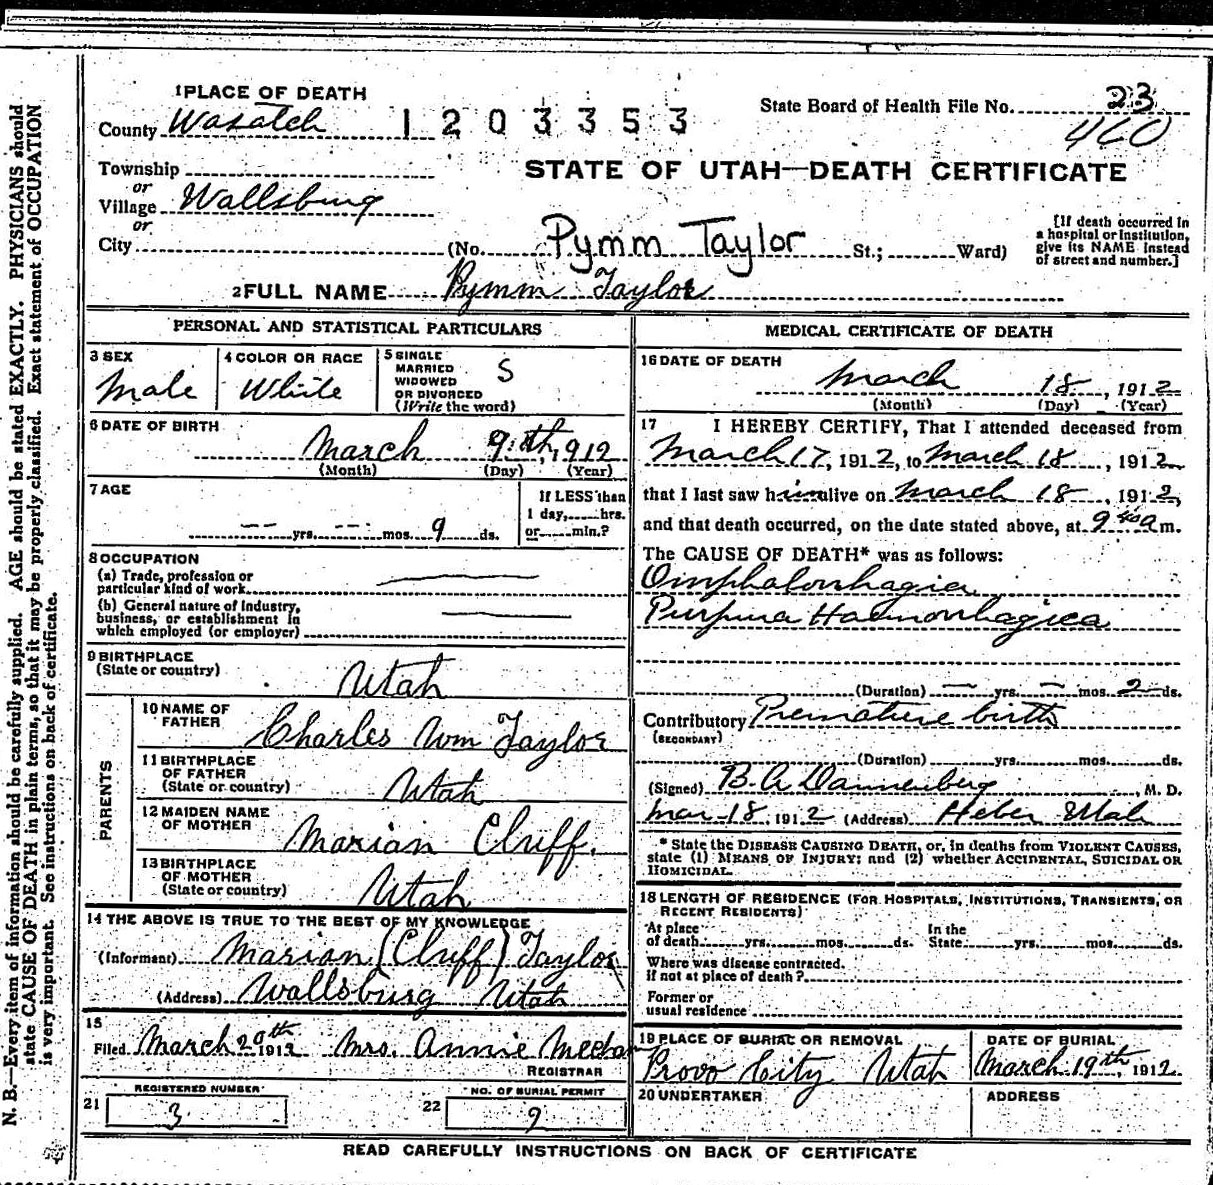 1 PLACE OF DEATH
County Wasatch 1203353 State Board of Health File No. 23
460
Township
or
Village Wallsburg
or
City (No. Pymm Taylor St.; Ward)
STATE OF UTAH—DEATH CERTIFICATE
[If death occurred in a hospital or institution, give its NAME instead of street and number.]
2 FULL NAME Pymm Taylor
PERSONAL AND STATISTICAL PARTICULARS
3 SEX Male
4 COLOR OR RACE White
5 SINGLE MARRIED WIDOWED OR DIVORCED (Write the word) S
6 DATE OF BIRTH
March 9th, 1912
(Month) (Day) (Year)
7 AGE
-- yrs. -- mos. 9 ds.
If LESS than 1 day, hrs. or min.?
8 OCCUPATION
(a) Trade, profession or
particular kind of work
(b) General nature of industry,
business, or establishment in
which employed (or employer)
9 BIRTHPLACE
(State or country)
Utah
PARENTS
10 NAME OF FATHER Charles Wm Taylor
11 BIRTHPLACE OF FATHER (State or country) Utah
12 MAIDEN NAME OF MOTHER Marian Cluff.
13 BIRTHPLACE OF MOTHER (State or country) Utah
14 THE ABOVE IS TRUE TO THE BEST OF MY KNOWLEDGE
(Informant) Marian (Cluff) Taylor
(Address) Wallsburg Utah
15
Filed March 20th 1912 Mrs. Annie Mecham
REGISTRAR
REGISTERED NUMBER
21 3
NO. OF BURIAL PERMIT
22 9
MEDICAL CERTIFICATE OF DEATH
16 DATE OF DEATH
March 18, 1912
(Month) (Day) (Year)
17 I HEREBY CERTIFY, That I attended deceased from
March 17, 1912, to March 18, 1912
that I last saw him alive on March 18, 1912,
and that death occurred, on the date stated above, at 9 40 a m.
The CAUSE OF DEATH* was as follows:
Omphalorrhagia
Purpura Haemorrhagica
(Duration) — yrs. — mos. 2 ds.
Contributory Premature birth
(SECONDARY)
(Duration) yrs. mos. ds.
(Signed) B. A. Dannenburg, M. D.
Mar 18, 1912 (Address) Heber Utah
* State the DISEASE CAUSING DEATH, or, in deaths from VIOLENT CAUSES,
state (1) MEANS OF INJURY; and (2) whether ACCIDENTAL, SUICIDAL OR
HOMICIDAL.
18 LENGTH OF RESIDENCE (FOR HOSPITALS, INSTITUTIONS, TRANSIENTS, OR
RECENT RESIDENTS)
At place of death yrs. mos. ds. In the State yrs. mos. ds.
Where was disease contracted,
if not at place of death?
Former or
usual residence
19 PLACE OF BURIAL OR REMOVAL
Provo City Utah
DATE OF BURIAL
March 19th, 1912
20 UNDERTAKER
ADDRESS
READ CAREFULLY INSTRUCTIONS ON BACK OF CERTIFICATE
N. B.—Every item of information should be carefully supplied. AGE should be stated EXACTLY. PHYSICIANS should
state CAUSE OF DEATH in plain terms, so that it may be properly classified. Exact statement of OCCUPATION
is very important. See instructions on back of certificate.